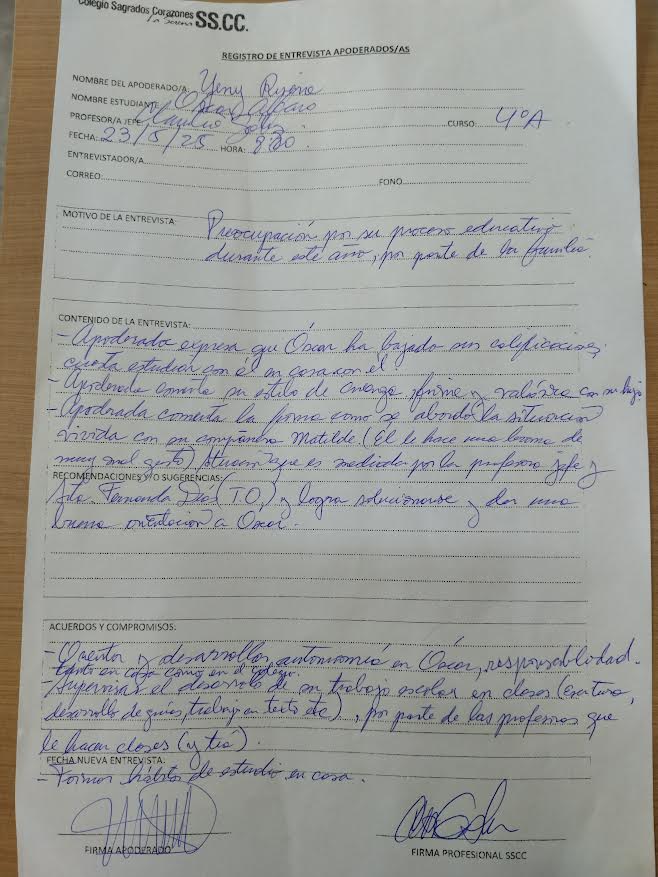 Colegio Sagrados Corazones
La Serena SS.CC.
REGISTRO DE ENTREVISTA APODERADOS/AS
NOMBRE DEL APODERADO/A: Yeny
NOMBRE ESTUDIANTE Oscar Alfaro
PROFESOR/A JEFE
CURSO: 4°A
FECHA: 23/5/25 HORA:
ENTREVISTADOR/A
CORREO: FONO
MOTIVO DE LA ENTREVISTA: Preocupación por su proceso educativo
durante este año, por parte de la familia.
CONTENIDO DE LA ENTREVISTA:
- Apoderada expresa que Óscar ha bajado sus calificaciones,
cuesta estudiar con él en casa
- Apoderada comenta su estilo de crianza, firme y valórica con su hijo
- Apoderada comenta la forma como se abordó la situación
vivida con su compañera Matilde (Él le hace una broma de
muy mal gusto) situación que es mediada por la profesora jefe y
RECOMENDACIONES Y/O SUGERENCIAS:
Srta Fernanda Díaz (T.O.) y logra solucionarse y dar una
buena orientación a Óscar.
ACUERDOS Y COMPROMISOS:
- Orientar y desarrollar autonomía en Óscar, responsabilidad.
tanto en casa como en el colegio.
- Supervisar el desarrollo de su trabajo escolar en clases (Escritura,
desarrollo de guías, trabajo en texto etc), por parte de las profesoras que
le hacen clases (y tía).
FECHA NUEVA ENTREVISTA:
- Formar hábitos de estudio en casa.
FIRMA APODERADO
FIRMA PROFESIONAL SSCC